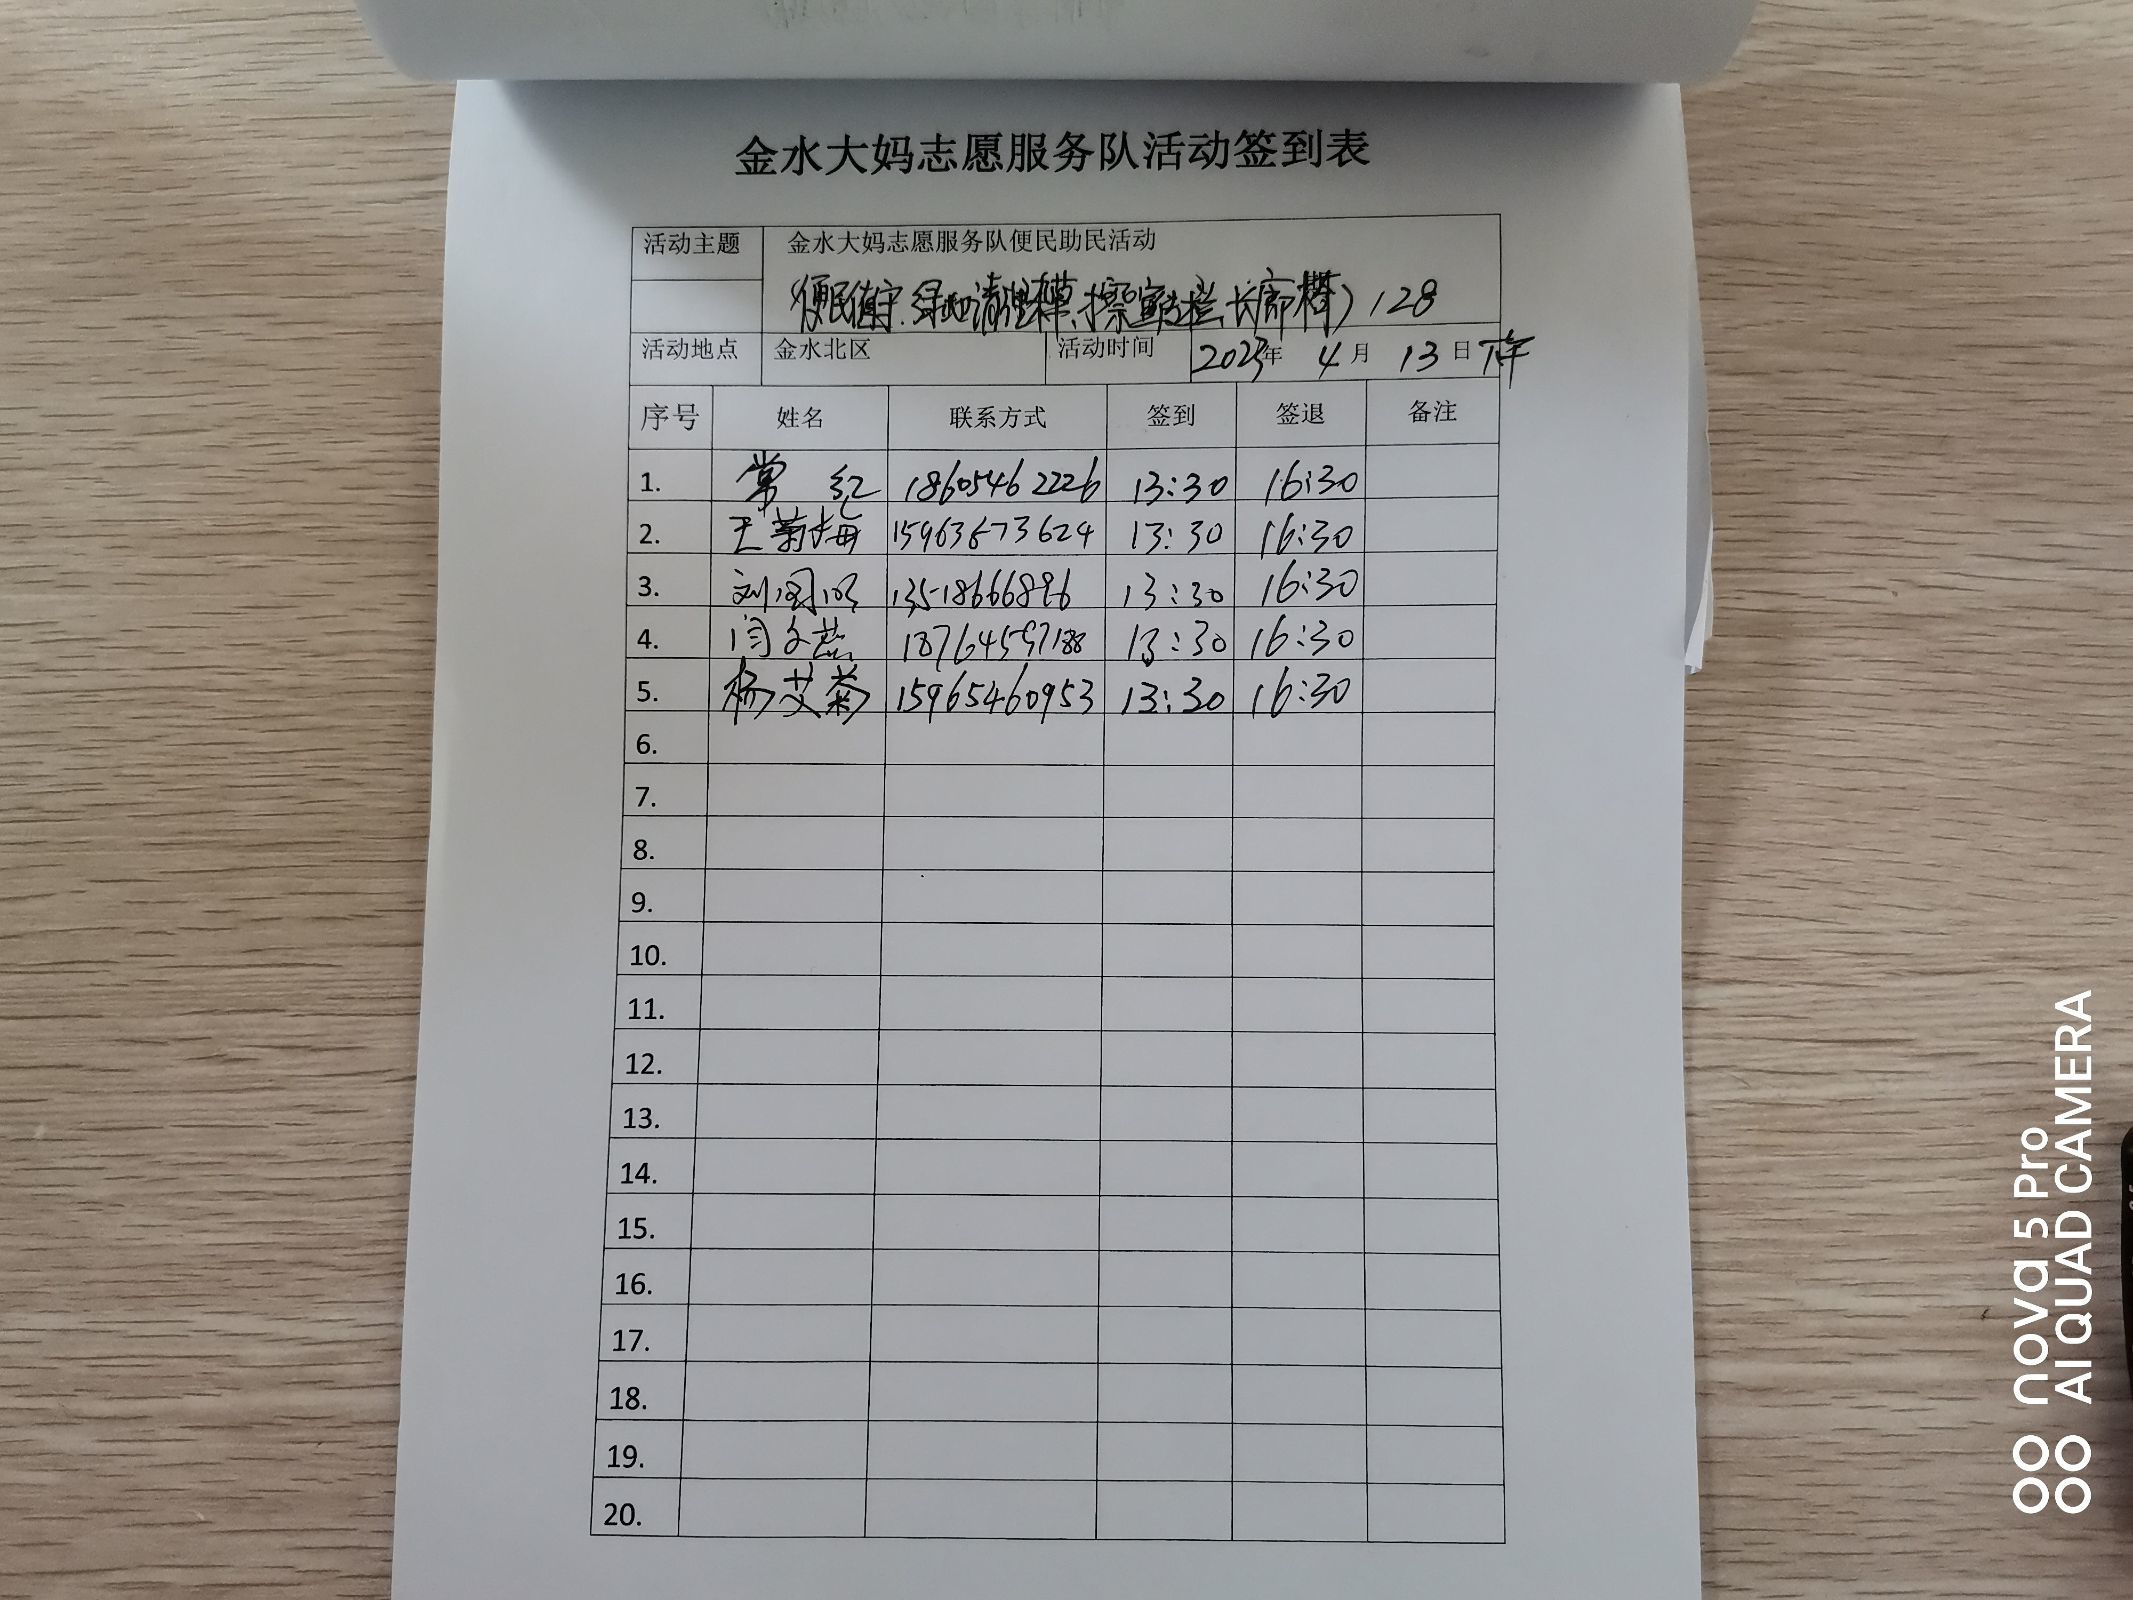 金水大妈志愿服务队活动签到表
活动主题 金水大妈志愿服务队便民助民活动
(便民值守.绿地清理杂草、擦宣传栏、长廊椅) 128
活动地点 金水北区 活动时间 2023年 4月 13日 下午
序号 姓名 联系方式 签到 签退 备注
1. 常红 18605462226 13:30 16:30
2. 王菊梅 15963673624 13:30 16:30
3. 刘国明 13518666896 13:30 16:30
4. 闫文燕 18764597188 13:30 16:30
5. 杨艾菊 15965460953 13:30 16:30
6.
7.
8.
9.
10.
11.
12.
13.
14.
15.
16.
17.
18.
19.
20.
nova 5 Pro
AI QUAD CAMERA